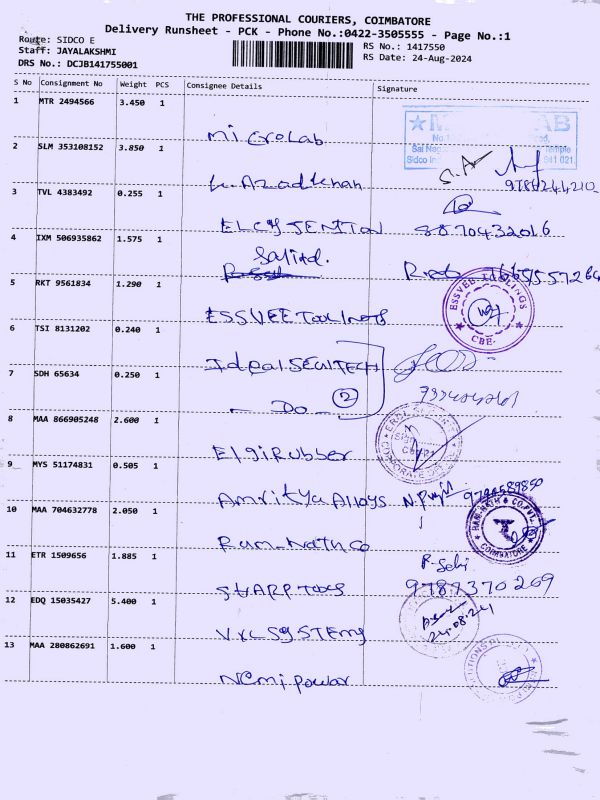 THE PROFESSIONAL COURIERS, COIMBATORE
Delivery Runsheet - PCK - Phone No.:0422-3505555 - Page No.:1
Route: SIDCO E
RS No.: 1417550
Staff: JAYALAKSHMI
RS Date: 24-Aug-2024
DRS No.: DCJB141755001
S No Consignment No Weight PCS Consignee Details Signature
1 MTR 2494566 3.450 1
Micro Lab
2 SLM 353108152 3.850 1
641 021
9788244210
3 TVL 4383492 0.255 1
ELCY JENITON 8870432016
4 IXM 506935862 1.575 1
Sajid.
5 RKT 9561834 1.290 1
ESSVEE Toolings
ESSVEE TOOLINGS
CBE-
6 TSI 8131202 0.240 1
Ideal SEWTECH
7 SDH 65634 0.250 1
- Do - 2
8 MAA 866905248 2.600 1
Elgi Rubber
9 MYS 51174831 0.505 1
Amritya Alloys
10 MAA 704632778 2.050 1
Ram-Nath Co
RAM-NATH & CO.PVT.
COIMBATORE
11 ETR 1509656 1.885 1
SHARP Tools 9789370209
12 EDQ 15035427 5.400 1
24.08.24
VXL SYSTEMS
13 MAA 280862691 1.600 1
NCmi power